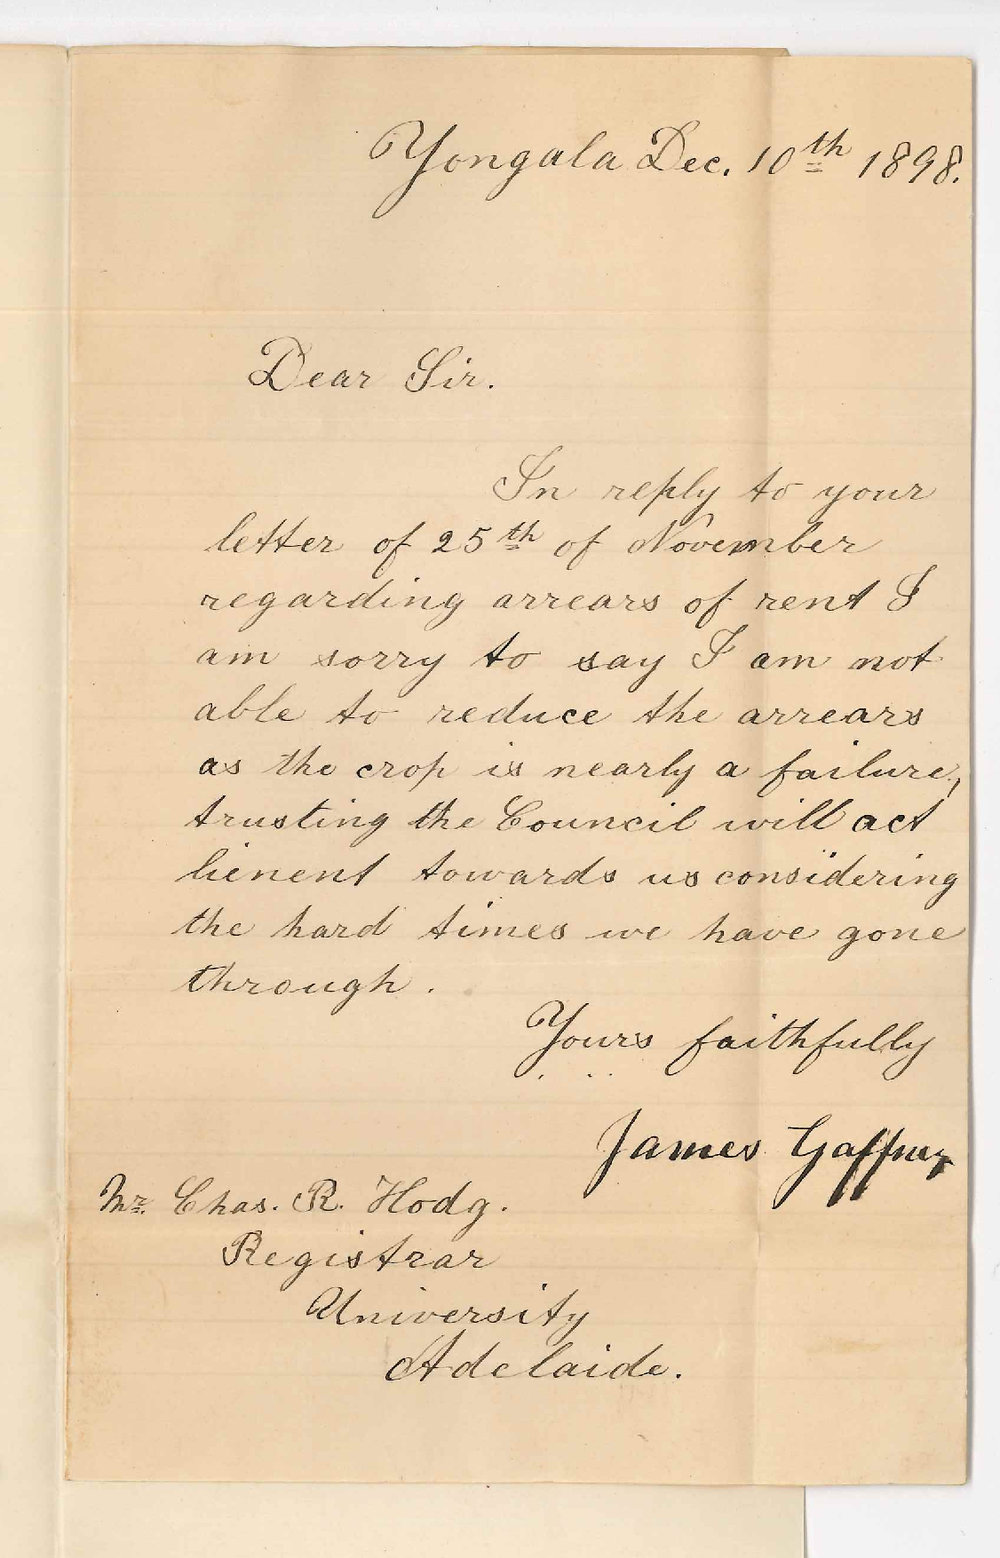 Yongala Dec. 10th 1898.
Dear Sir.
In reply to your
letter of 25th of November
regarding arrears of rent I
am sorry to say I am not
able to reduce the arrears
as the crop is nearly a failure,
trusting the Council will act
lienent towards us considering
the hard times we have gone
through.
Yours faithfully
James Gaffney
Mr. Chas. R. Hodg.
Registrar
University
Adelaide.